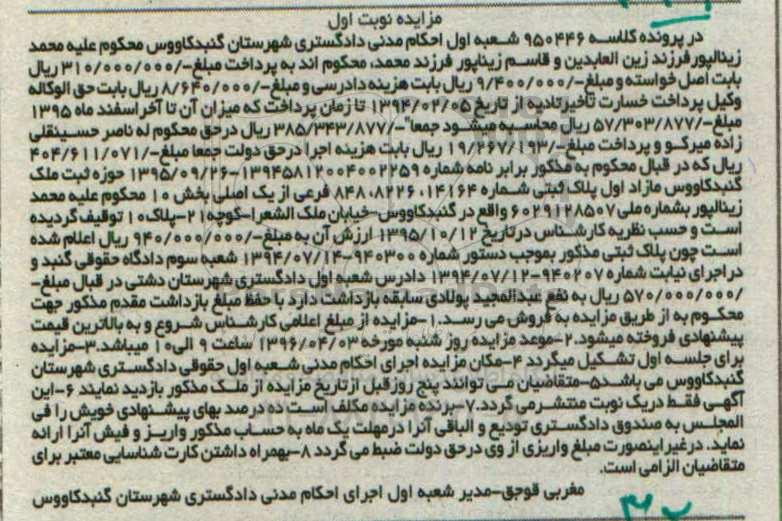 مزایده نوبت اول
در پرونده کلاسه ۹۵۰۴۴۶ شعبه اول احکام مدنی دادگستری شهرستان گنبدکاووس محکوم علیه محمد
زینالپور فرزند زین العابدین و قاسم زیناپور فرزند محمد، محکوم اند به پرداخت مبلغ-/۳۱۰/۰۰۰/۰۰۰ ریال
بابت اصل خواسته و مبلغ-/۹/۴۰۰/۰۰۰ ریال بابت هزینه دادرسی و مبلغ-/۸/۶۴۰/۰۰۰ ریال بابت حق الوکاله
وکیل پرداخت خسارت تأخیرتادیه از تاریخ ۱۳۹۴/۰۲/۰۵ تا زمان پرداخت که میزان آن تا آخر اسفند ماه ۱۳۹۵
مبلغ-/۵۷/۳۰۳/۸۷۷ ریال محاسبه میشود جمعا"-/۳۸۵/۳۴۳/۸۷۷ ریال درحق محکوم له ناصر حسینقلی
زاده میرکو و پرداخت مبلغ-/۱۹/۲۶۷/۱۹۳ ریال بابت هزینه اجرا درحق دولت جمعا مبلغ-/۴۰۴/۶۱۱/۰۷۱
ریال که در قبال محکوم به مذکور برابر نامه شماره ۱۳۹۴۵۸۱۲۰۰۴۰۰۲۲۵۹-۱۳۹۵/۰۹/۲۶ حوزه ثبت ملک
گنبدکاووس مازاد اول پلاک ثبتی شماره ۸۴۸،۸۲۲۶،۱۴۱۶۴ فرعی از یک اصلی بخش ۱۰ محکوم علیه محمد
زینالپور بشماره ملی ۶۰۲۹۱۲۸۵۰۷ واقع در گنبدکاووس-خیابان ملک الشعرا-کوچه۲۱-پلاک۱۰ توقیف گردیده
است و حسب نظریه کارشناس درتاریخ ۱۳۹۵/۱۰/۱۲ ارزش آن به مبلغ-/۹۴۰/۰۰۰/۰۰۰ ریال اعلام شده
است چون پلاک ثبتی مذکور بموجب دستور شماره ۹۴۰۳۰۰-۱۳۹۴/۰۷/۱۴ شعبه سوم دادگاه حقوقی گنبد و
در اجرای نیابت شماره ۹۴۰۲۰۷-۱۳۹۴/۰۷/۱۲ دادرس شعبه اول دادگستری شهرستان دشتی در قبال مبلغ-
/۵۷۰/۰۰۰/۰۰۰ ریال به نفع عبدالمجید پولادی سابقه بازداشت دارد با حفظ مبلغ بازداشت مقدم مذکور جهت
محکوم به از طریق مزایده به فروش می رسد.۱-مزایده از مبلغ اعلامی کارشناس شروع و به بالاترین قیمت
پیشنهادی فروخته میشود.۲-موعد مزایده روز شنبه مورخه ۱۳۹۶/۰۴/۰۳ ساعت ۹ الی۱۰ میباشد.۳-مزایده
برای جلسه اول تشکیل میگردد ۴-مکان مزایده اجرای احکام مدنی شعبه اول حقوقی دادگستری شهرستان
گنبدکاووس می باشد۵-متقاضیان می توانند پنج روزقبل ازتاریخ مزایده از ملک مذکور بازدید نمایند ۶-این
آگهی فقط دریک نوبت منتشر می گردد.۷-برنده مزایده مکلف است ده درصد بهای پیشنهادی خویش را فی
المجلس به صندوق دادگستری تودیع و الباقی آنرا درمهلت یک ماه به حساب مذکور واریز و فیش آنرا ارائه
نماید. درغیراینصورت مبلغ واریزی از وی درحق دولت ضبط می گردد ۸-بهمراه داشتن کارت شناسایی معتبر برای
متقاضیان الزامی است.
مغربی قوجق-مدیر شعبه اول اجرای احکام مدنی دادگستری شهرستان گنبدکاووس